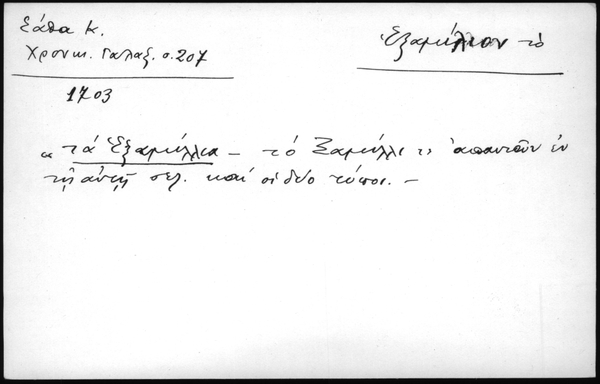 Σάθα Κ.
Χρονικ. Γαλαξ. σ. 207
Ἑξαμίλιον τὸ
1703
« τὰ Ἑξαμίλλια – τὸ Ξαμίλλι » ἀπαντοῦν ἐν
τῇ αὐτῇ σελ. καὶ οἱ δύο τύποι. –